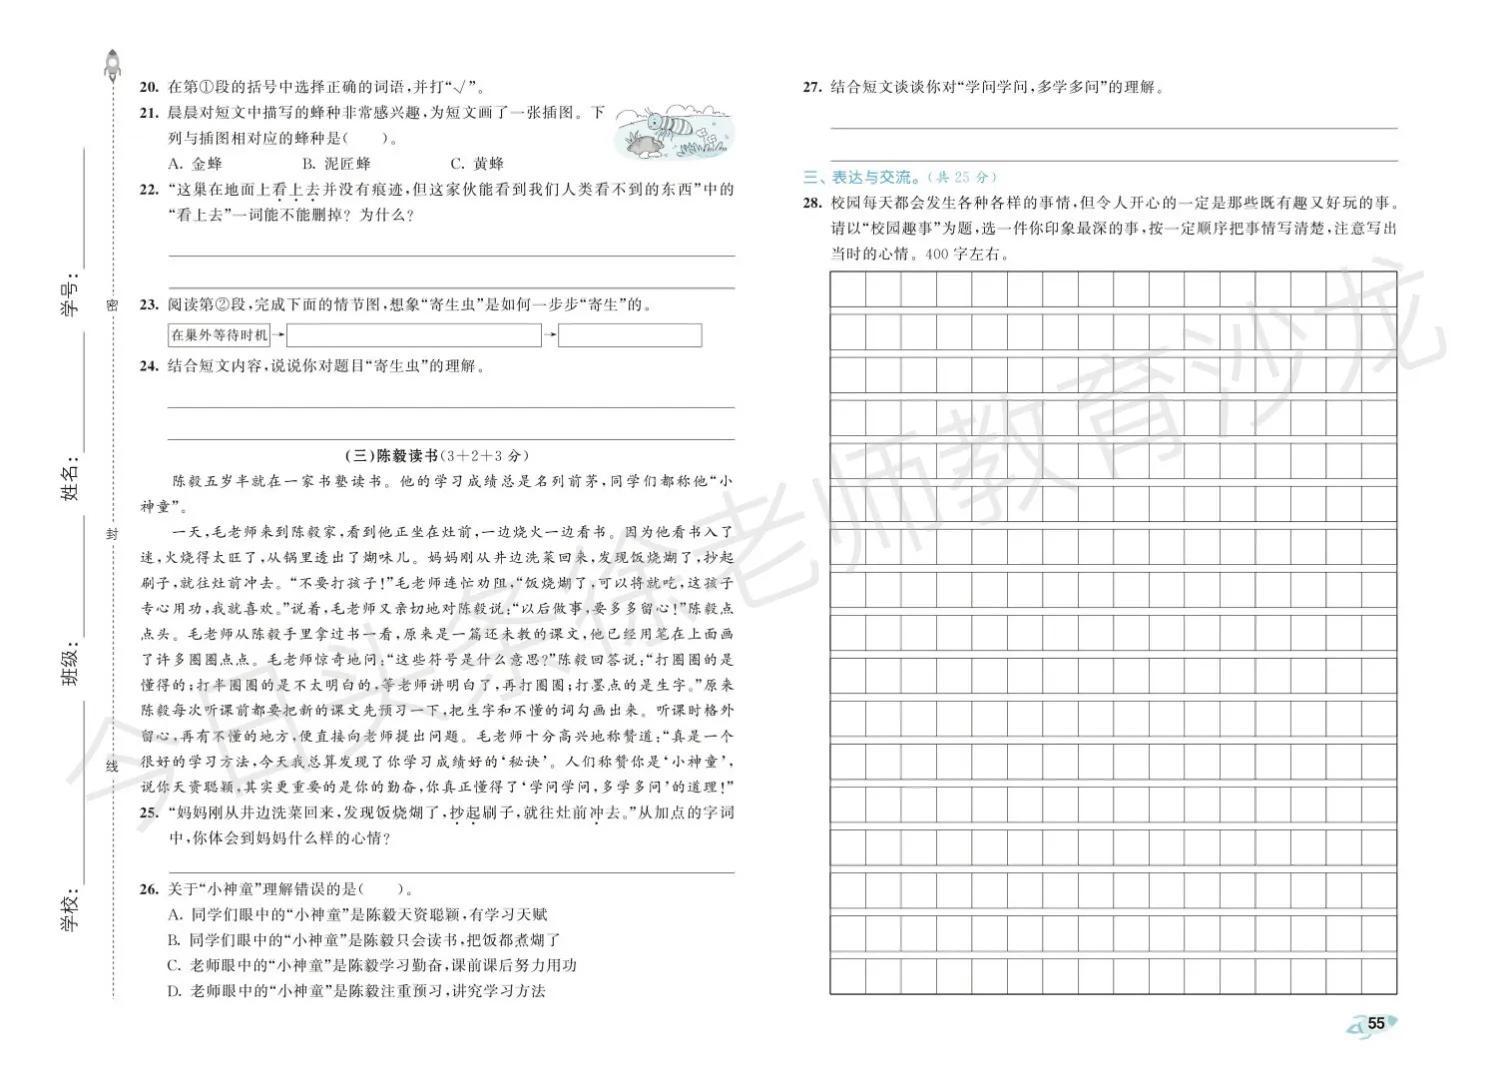 20. 在第①段的括号中选择正确的词语,并打“√”。
21. 晨晨对短文中描写的蜂种非常感兴趣,为短文画了一张插图。下
列与插图相对应的蜂种是(　　)。
A. 金蜂　　B. 泥匠蜂　　C. 黄蜂
22. “这巢在地面上看上去并没有痕迹,但这家伙能看到我们人类看不到的东西”中的
“看上去”一词能不能删掉？为什么？
23. 阅读第②段,完成下面的情节图,想象“寄生虫”是如何一步步“寄生”的。
在巢外等待时机→　　→
24. 结合短文内容,说说你对题目“寄生虫”的理解。
(三)陈毅读书(3+2+3 分)
陈毅五岁半就在一家书塾读书。他的学习成绩总是名列前茅,同学们都称他“小
神童”。
一天,毛老师来到陈毅家,看到他正坐在灶前,一边烧火一边看书。因为他看书入了
迷,火烧得太旺了,从锅里透出了煳味儿。妈妈刚从井边洗菜回来,发现饭烧煳了,抄起
刷子,就往灶前冲去。“不要打孩子!”毛老师连忙劝阻,“饭烧煳了,可以将就吃,这孩子
专心用功,我就喜欢。”说着,毛老师又亲切地对陈毅说:“以后做事,要多多留心!”陈毅点
点头。毛老师从陈毅手里拿过书一看,原来是一篇还未教的课文,他已经用笔在上面画
了许多圈圈点点。毛老师惊奇地问:“这些符号是什么意思?”陈毅回答说:“打圈圈的是
懂得的;打半圈圈的是不太明白的,等老师讲明白了,再打圈圈;打墨点的是生字。”原来
陈毅每次听课前都要把新的课文先预习一下,把生字和不懂的词勾画出来。听课时格外
留心,再有不懂的地方,便直接向老师提出问题。毛老师十分高兴地称赞道:“真是一个
很好的学习方法,今天我总算发现了你学习成绩好的‘秘诀’。人们称赞你是‘小神童’,
说你天资聪颖,其实更重要的是你的勤奋,你真正懂得了‘学问学问,多学多问’的道理!”
25. “妈妈刚从井边洗菜回来,发现饭烧煳了,抄起刷子,就往灶前冲去。”从加点的字词
中,你体会到妈妈什么样的心情?
26. 关于“小神童”理解错误的是(　　)。
A. 同学们眼中的“小神童”是陈毅天资聪颖,有学习天赋
B. 同学们眼中的“小神童”是陈毅只会读书,把饭都煮煳了
C. 老师眼中的“小神童”是陈毅学习勤奋,课前课后努力用功
D. 老师眼中的“小神童”是陈毅注重预习,讲究学习方法
27. 结合短文谈谈你对“学问学问,多学多问”的理解。
三、表达与交流。(共 25 分)
28. 校园每天都会发生各种各样的事情,但令人开心的一定是那些既有趣又好玩的事。
请以“校园趣事”为题,选一件你印象最深的事,按一定顺序把事情写清楚,注意写出
当时的心情。400 字左右。
学校:
班级:
姓名:
学号:
密
封
线
今日头条徐老师教育沙龙
55